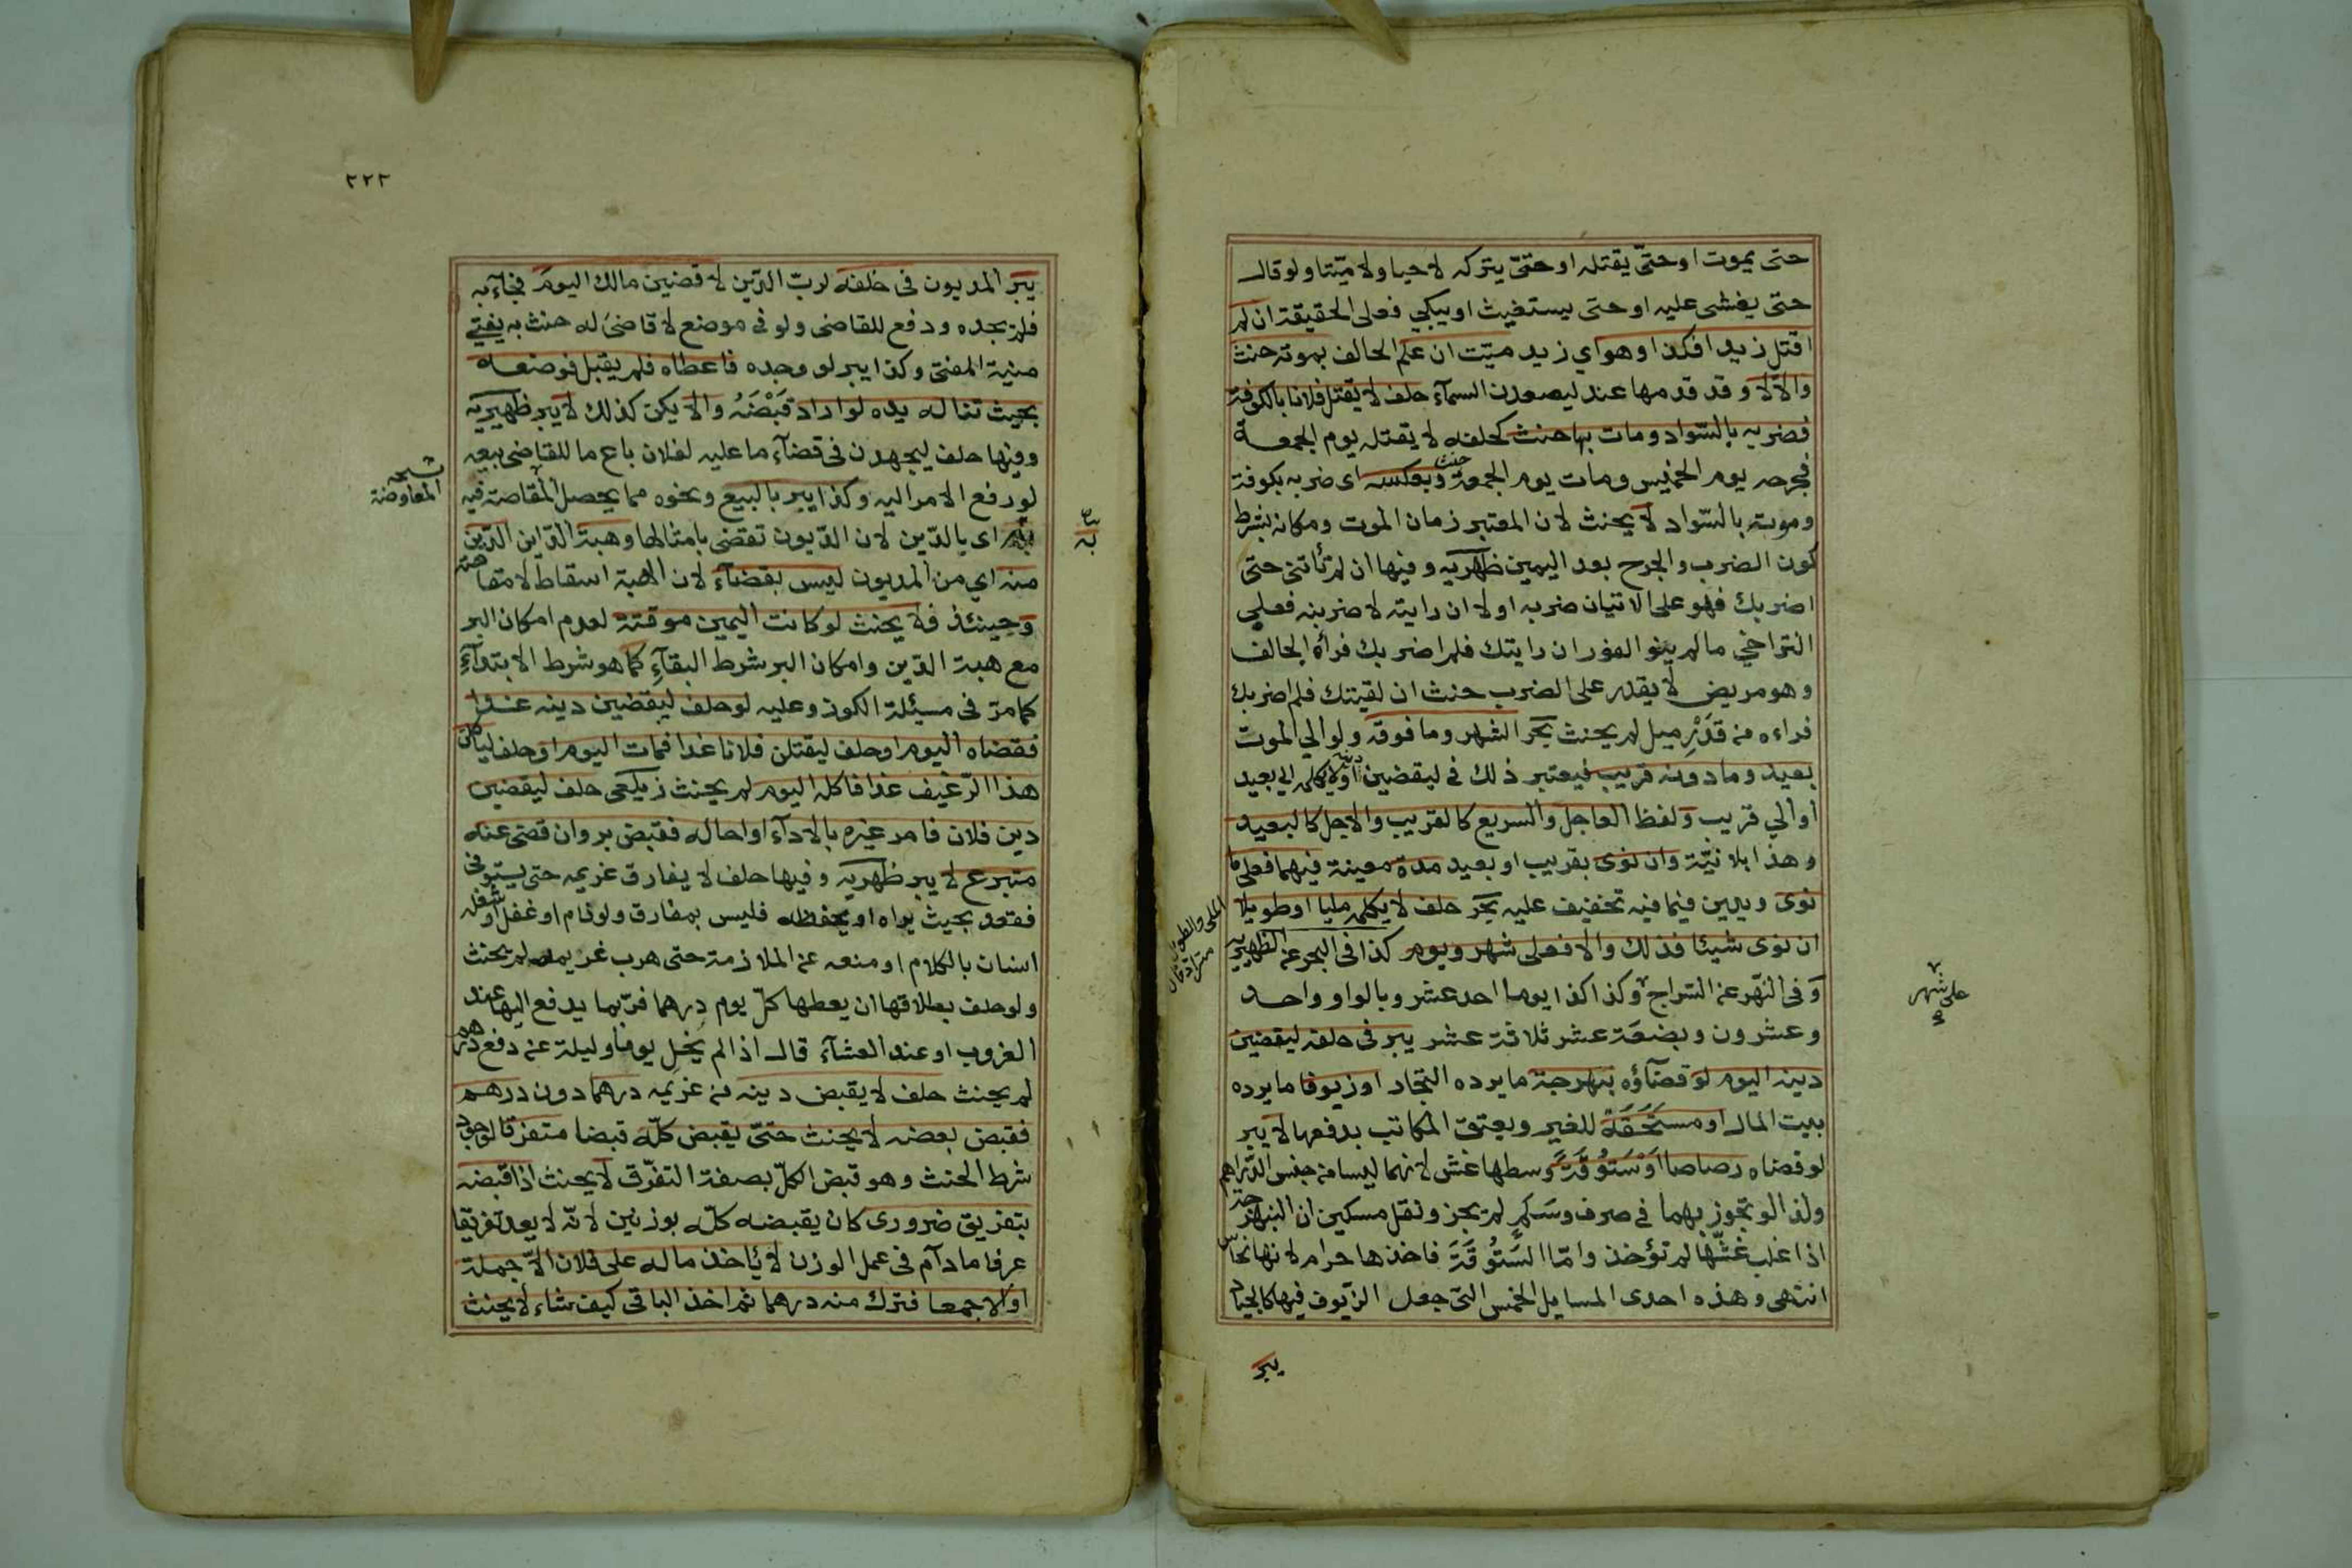 حتى يموت او حتّى يقتله او حتىّ يتركه لاحيا ولا ميّتا ولو قال
حتى يغشى عليه او حتى يستغيث او يبكي فعلى الحقيقة ان لم
اقتل زيدا فكذا وهو اي زيد ميّت ان علم الحالف بموته حنث
والّا لا وقد قدمها عند ليصعدن السمآء حلف لا يقتل فلانا بالكوفة
فضربه بالسّواد ومات بها حنث كحلفه لا يقتله يوم الجمعة
فجرحه يوم الخميس ومات يوم الجمعة حنث وبعكسه اى ضربه بكوفة
وموته بالسّواد لا يحنث لان المعتبر زمان الموت ومكانه بشرط
كون الضرب والجرح بعد اليمين ظهيريه وفيها ان لم تأتنى حتى
اضربك فهو على الاتيان ضربه او لا ان رايته لاضربنه فعلى
التراخي مالم ينو الفور ان رايتك فلم اضربك فرأه الحالف
وهو مريض لا يقدر على الضرب حنث ان لقيتك فلم اضربك
فراءه من قَدْرِ ميل لم يحنث بحر الشهر وما فوقه ولو الي الموت
بعيد وما دونه قريب فيعتبر ذلك فى ليقضين دينه او لا يكلمه الي بعيد
او الي قريب ولفظ العاجل والسريع كالقريب والاجل كالبعيد
وهذا بلا نيّة وان نوى بقريب او بعيد مدة معينة فيهما فعلى ما
نوى ويدين فيما فيه تخفيف عليه بحر حلف لا يكلمه مليا او طويلا
ان نوى شيئا فذلك والا فعلى شهر ويوم كذا فى البحر عن الظهيريه
وفى النّهر عن السّراج وكذا كذا يوما احد عشر وبالواو واحد
وعشرون وبضعة عشر ثلاثة عشر يبر فى حلفه ليقضين
دينه اليوم لو قضآؤه بنهرجة ما يرده التجار او زيوفا ما يرده
بيت المال او مستَحَقَة للغير ويعتق المكاتب بدفعها لا يبر
لو قضاه رصاصا اوْسَتُوقَةً وسطها غش لانهما ليسا من جنس الدّراهم
ولذا لو تجوز بهما فى صرف وسَلَم لم يجز ونقل مسكين ان النبهرجة
اذا غلب غشّها لم تؤخذ وامّا السَتُوقَة فاخذها حرام لانها نحاس
انتهى وهذه احدى المسايل الخمس التى جعل الزّيوف فيها كالجياد
يبر
الملى والطويل
مترادفان
على شهر
٢٢٢
يبر المديون فى حلفه لربّ الدّين لاقضين مالك اليومَ فجآء به
فلم يجده ودفع للقاضى ولو فى موضع لا قاضى له حنث به يفتي
منية المفتى وكذا يبر لو وجده فاعطاه فلم يقبل فوضعه
بحيث تناله يده لو اراد قَبْضَهُ والا يكن كذلك لا يبر ظهيريه
وفيها حلف ليجهدن فى قضآء ما عليه لفلان باع ما للقاضى بيعه
لو رفع الامر اليه وكذا يبر بالبيع ونحوه مما يحصل المقاصة فيه
به اى بالدّين لان الدّيون تقضى بامثالها وهبة الدّاين الدّين
منه اي من المديون ليس بقضآء لان الهبة اسقاط لا مقاصة
وحينئذ فلا يحنث لو كانت اليمين موقتة لعدم امكان البر
مع هبة الدّين وامكان البر شرط البقآءِ كما هو شرط الابتدآءِ
كما مرّ فى مسئلة الكوز وعليه لو حلف ليقضين دينه غدا
فقضاه اليوم او حلف ليقتلن فلانا غدا فمات اليوم او حلف لياكلن
هذا الرّغيف غدا فاكله اليوم لم يحنث زيلعى حلف ليقضين
دين فلان فامر غيره بالادآء او احاله فقبض بر وان قضى عنه
متبرع لا يبر ظهريه وفيها حلف لا يفارق غريمه حتى يستوفى
فقعد بحيث يراه او يحفظه فليس بمفارق ولو نام او غفل او شغله
انسان بالكلام او منعه عن الملازمة حتى هرب غريمه لم يحنث
ولو حلف بطلاقها ان يعطها كلّ يوم درهما فربّما يدفع اليها عند
الغروب او عند العشآء قال اذا لم يخل يوما وليلة عن دفع درهم
لم يحنث حلف لا يقبض دينه من غريمه درهما دون درهم
فقبض بعضه لا يحنث حتىّ يقبض كلّه قبضا متفرقا لوجود
شرط الحنث وهو قبض الكلّ بصفة التفرّق لا يحنث اذا قبضه
بتفريق ضرورى كان يقبضه كلّه بوزنين لانّه لا يعد تفريقا
عرفا ما دآم فى عمل الوزن لا يأخذ ماله على فلان الّا جملة
او الا جمعا فترك منه درهما ثم اخذ الباقى كيف شاء لا يحنث
نسخه
المعاوضة
به